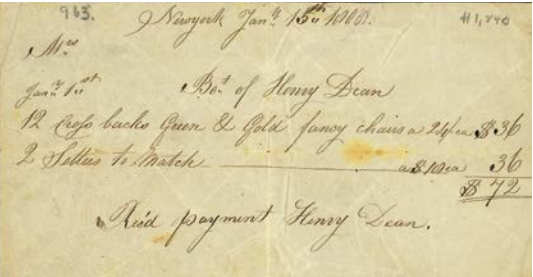 963. #1,240
Newyork Jany 15th 1808.
Mrs
Jany 1st Bot of Henry Dean
12 Cross backs Green & Gold fancy chairs a 24/ ea $36
2 Settees to Match a $18 ea 36
$72
Rec'd payment Henry Dean.